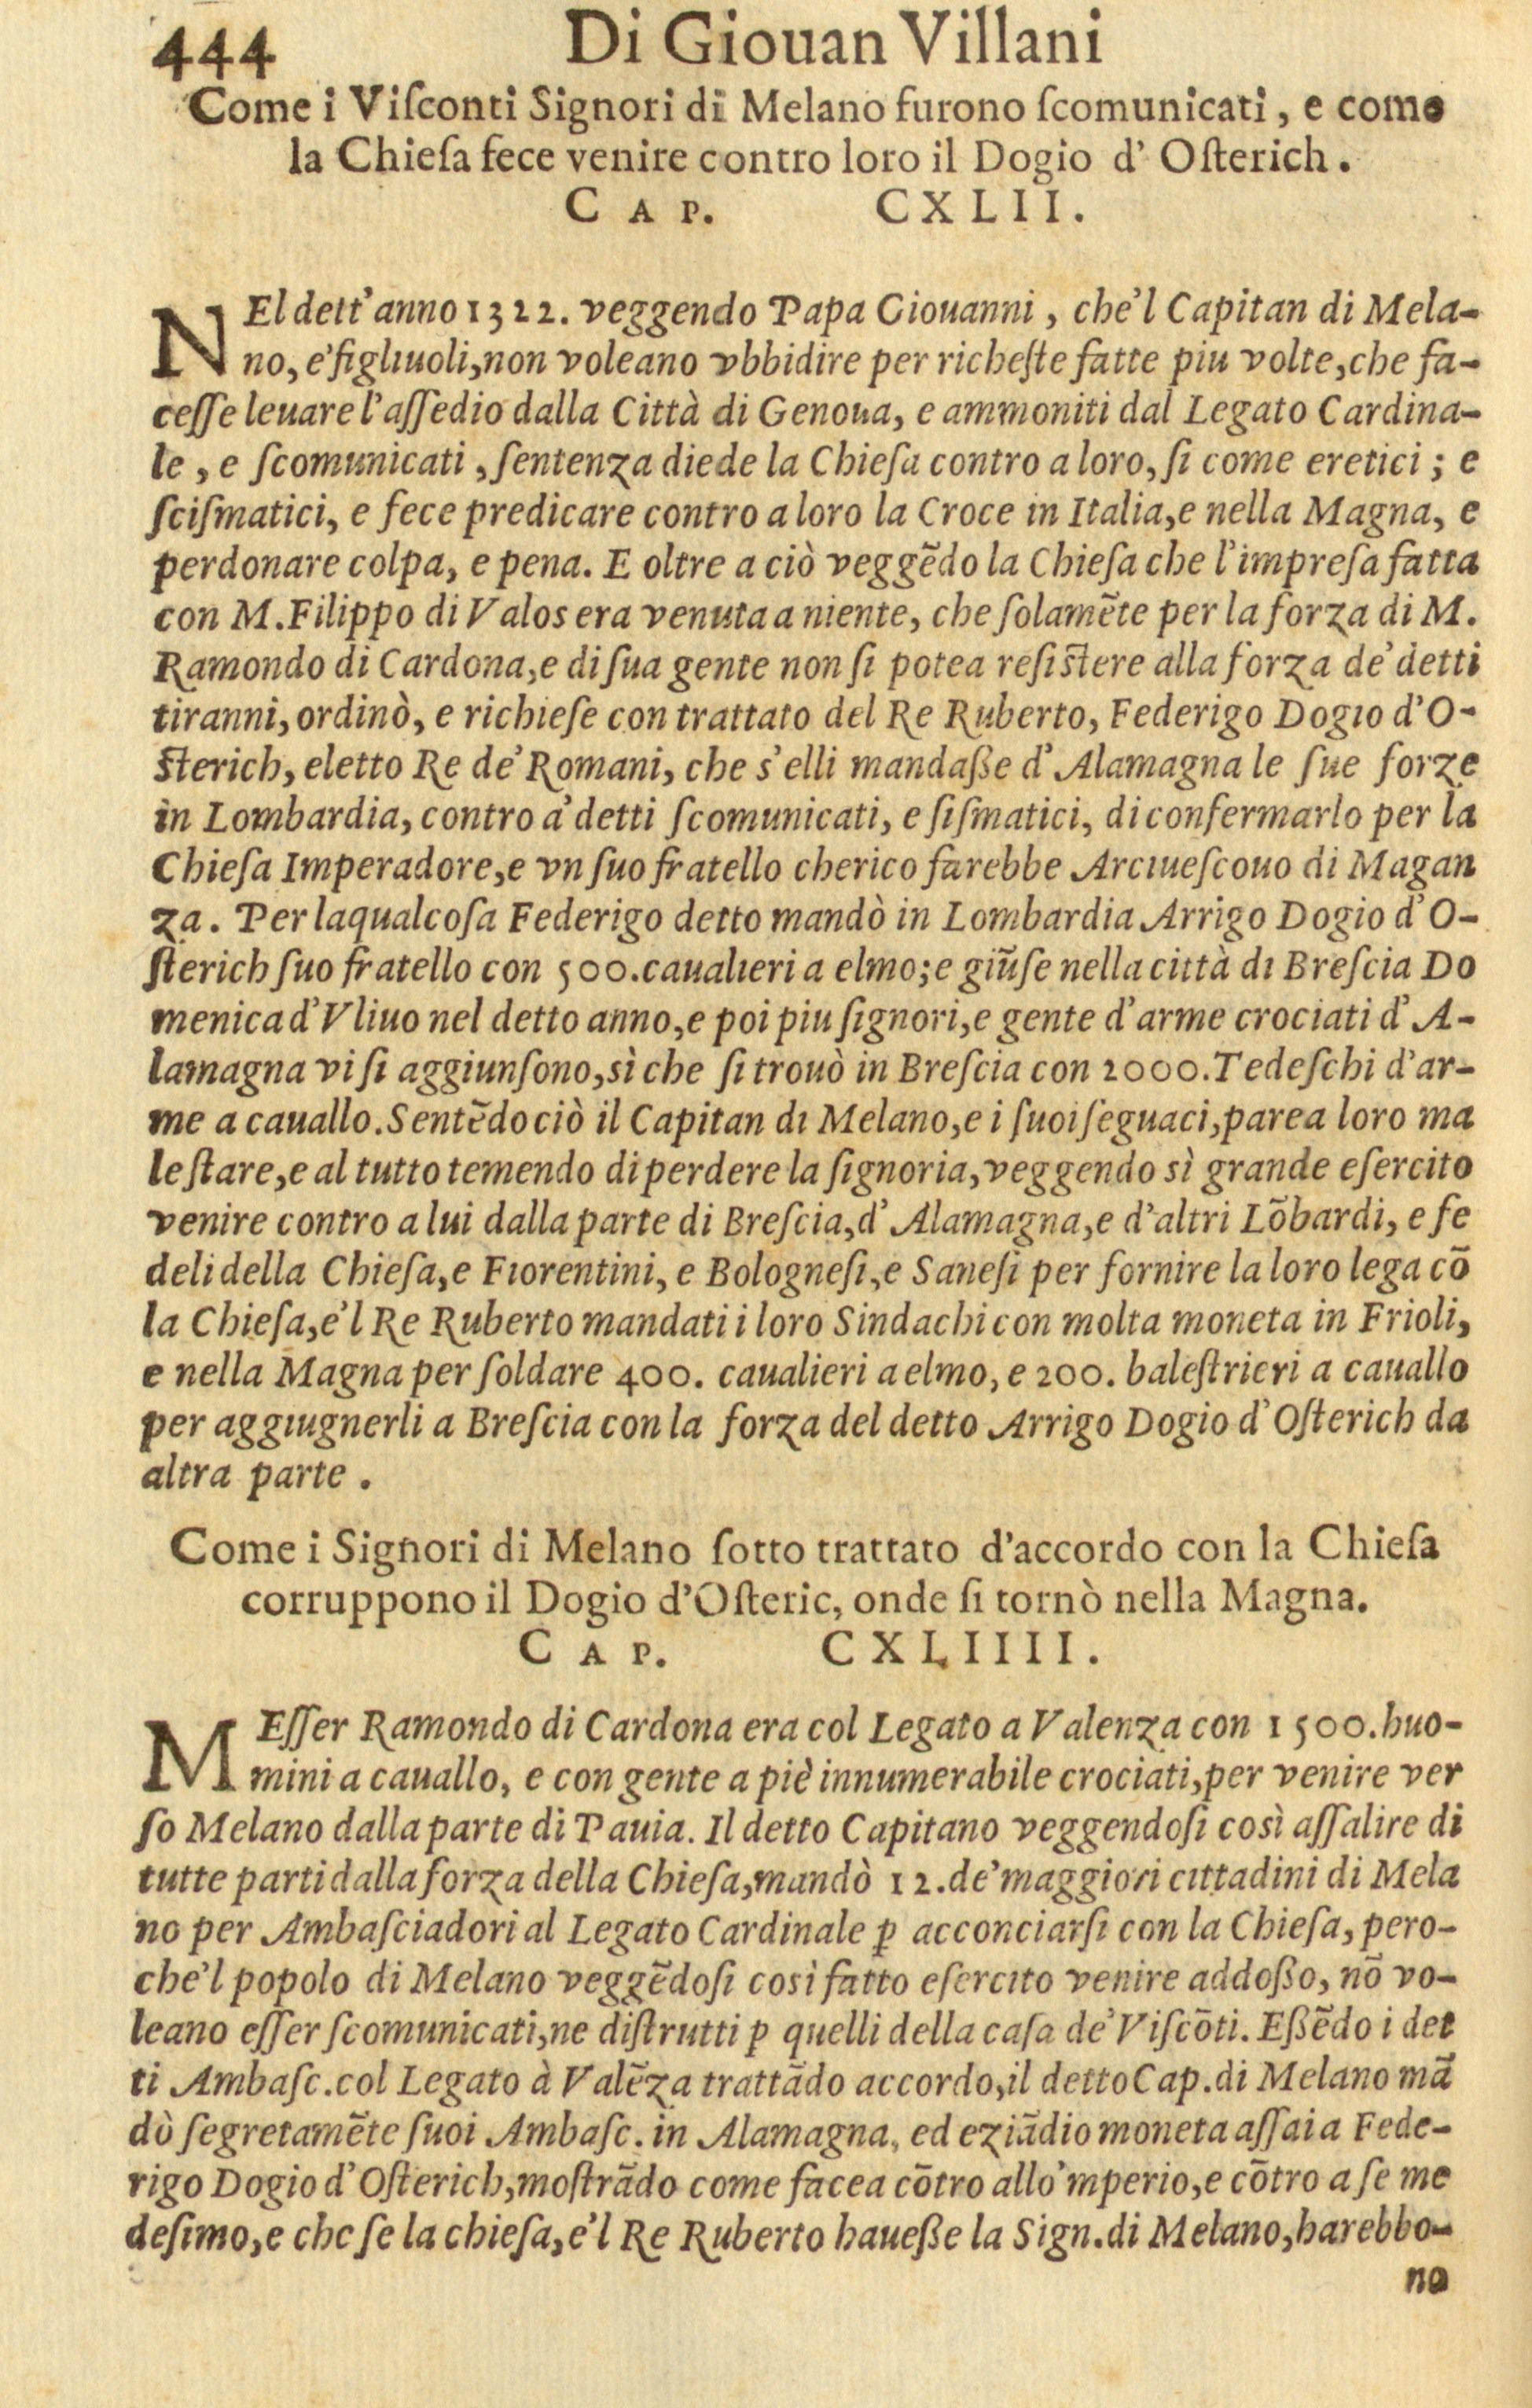 444 Di Giouan Villani
Come i Viſconti Signori di Melano furono ſcomunicati, e come
la Chieſa fece venire contro loro il Dogio d' Oſterich.
CAP. CXLII.
NEl dett'anno 1322. veggendo Papa Giouanni, che'l Capitan di Mela-
no, e' figliuoli, non voleano vbbidire per richeſte fatte piu volte, che fa-
ceſſe leuare l'aſſedio dalla Città di Genoua, e ammoniti dal Legato Cardina-
le, e ſcomunicati, ſentenza diede la Chieſa contro a loro, ſi come eretici; e
ſciſmatici, e fece predicare contro a loro la Croce in Italia, e nella Magna, e
perdonare colpa, e pena. E oltre a ciò veggẽdo la Chieſa che l'impreſa fatta
con M. Filippo di Valos era venuta a niente, che ſolamẽte per la forza di M.
Ramondo di Cardona, e di ſua gente non ſi potea reſiſtere alla forza de' detti
tiranni, ordinò, e richieſe con trattato del Re Ruberto, Federigo Dogio d'O-
ſterich, eletto Re de' Romani, che s'elli mandaße d' Alamagna le ſue forze
in Lombardia, contro a' detti ſcomunicati, e ſiſmatici, di confermarlo per la
Chieſa Imperadore, e vn ſuo fratello cherico farebbe Arciueſcouo di Magan
za. Per laqualcoſa Federigo detto mandò in Lombardia Arrigo Dogio d' O-
ſterich ſuo fratello con 500. caualieri a elmo; e giũſe nella città di Breſcia Do
menica d'Vliuo nel detto anno, e poi piu ſignori, e gente d'arme crociati d' A-
lamagna vi ſi aggiunſono, sì che ſi trouò in Breſcia con 2000. Tedeſchi d'ar-
me a cauallo. Sentẽdo ciò il Capitan di Melano, e i ſuoi ſeguaci, parea loro ma
le ſtare, e al tutto temendo di perdere la ſignoria, veggendo sì grande eſercito
venire contro a lui dalla parte di Breſcia, d' Alamagna, e d'altri Lõbardi, e fe
deli della Chieſa, e Fiorentini, e Bologneſi, e Saneſi per fornire la loro lega cõ
la Chieſa, e'l Re Ruberto mandati i loro Sindachi con molta moneta in Frioli,
e nella Magna per ſoldare 400. caualieri a elmo, e 200. baleſtrieri a cauallo
per aggiugnerli a Breſcia con la forza del detto Arrigo Dogio d' Oſterich da
altra parte.
Come i Signori di Melano ſotto trattato d'accordo con la Chieſa
corruppono il Dogio d'Oſteric, onde ſi tornò nella Magna.
CAP. CXLIIII.
MEſſer Ramondo di Cardona era col Legato a Valenza con 1500. huo-
mini a cauallo, e con gente a piè innumerabile crociati, per venire ver
ſo Melano dalla parte di Pauia. Il detto Capitano veggendoſi così aſſalire di
tutte parti dalla forza della Chieſa, mandò 12. de' maggiori cittadini di Mela
no per Ambaſciadori al Legato Cardinale ꝑ acconciarſi con la Chieſa, pero-
che'l popolo di Melano veggẽdoſi così fatto eſercito venire addoßo, nõ vo-
leano eſſer ſcomunicati, ne diſtrutti ꝑ quelli della caſa de' Viſcõti. Eßẽdo i det
ti Ambaſc. col Legato à Valẽza trattãdo accordo, il detto Cap. di Melano mã
dò ſegretamẽte ſuoi Ambaſc. in Alamagna, ed eziãdio moneta aſſai a Fede-
rigo Dogio d' Oſterich, moſtrãdo come facea cõtro allo'mperio, e cõtro a ſe me
deſimo, e che ſe la chieſa, e'l Re Ruberto haueße la Sign. di Melano, harebbo-
no